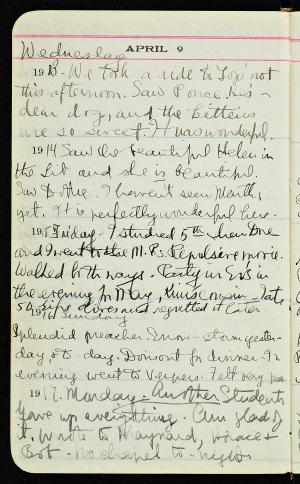 Wednesday
APRIL 9
1913 - We took a ride to Top not
this afternoon. Saw Ponce, his
dear dog, and the kittens
are so sweet. It was wonderful.
1914 Saw the beautiful Helen in
the Lib and she is beautiful.
Saw D. the. I haven't seen
yet. It is perfectly wonderful here.
1915 Friday - I studied 5th hour
and I went to the M.P.s. Repulsive movie.
Walked both ways. Party in
the evening for May, cousin - Tate
and regretted it later.
19 Sunday
Splendid preacher. Snow - storm yester-
day & to - day. for dinner. In
evening went to Vespers. Felt very
1917. Monday - Another Students
gave up everything. Am glad of
it. Wrote to Maynard, Horace &
Bob - No chapel to - night